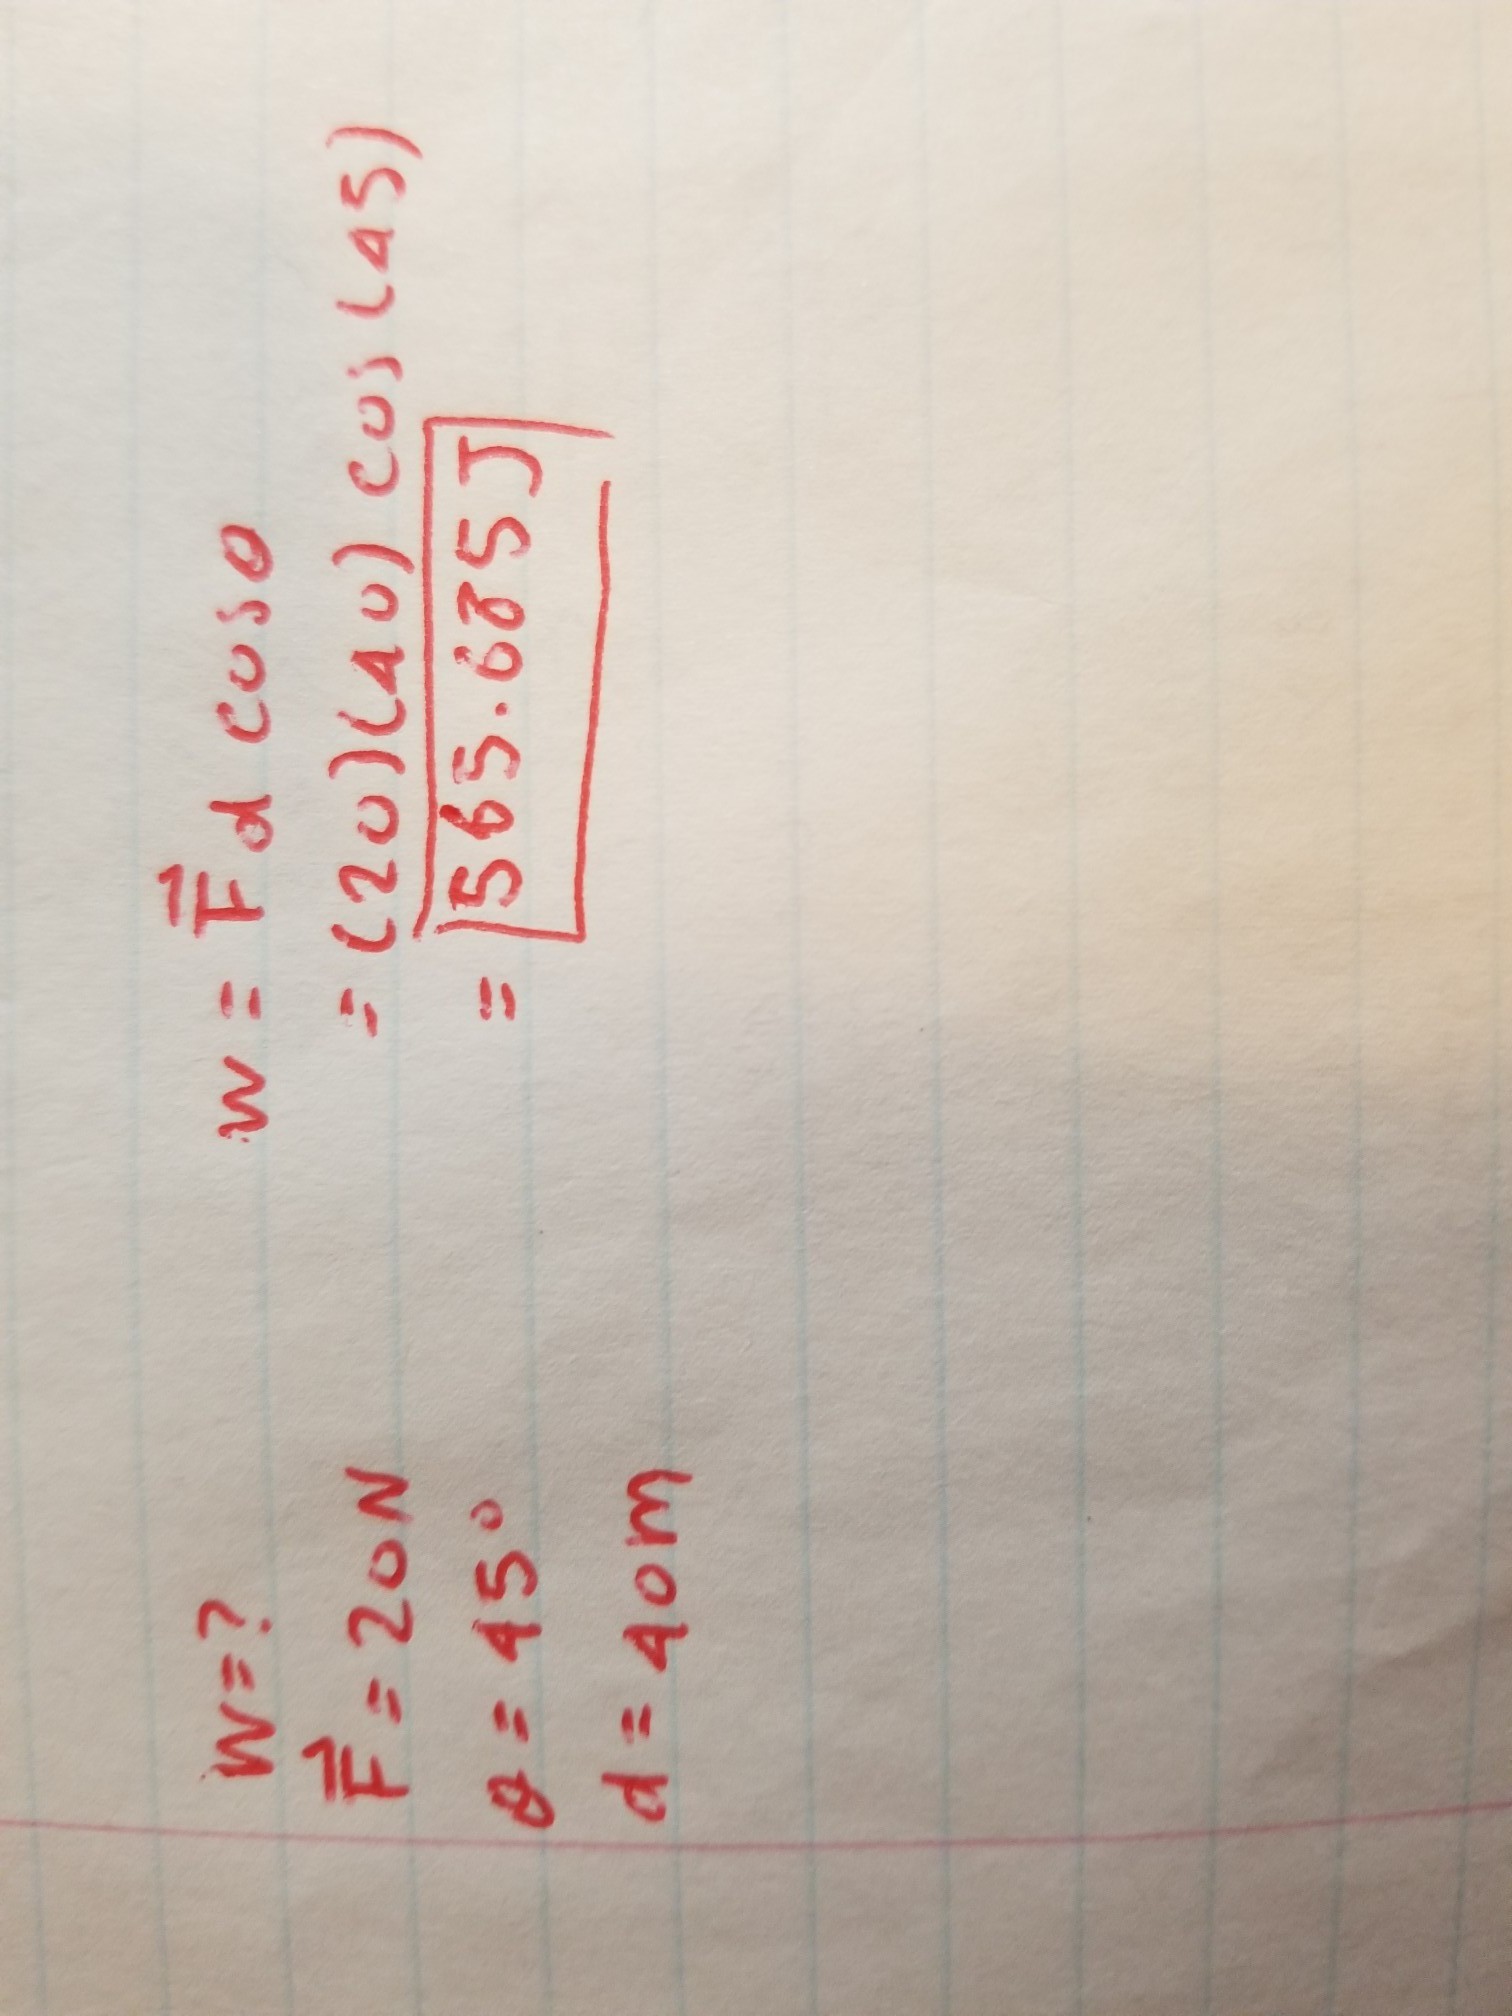 W=?
F⃗=20N
θ=45°
d=40m
W = F⃗ d cosθ
= (20)(40) cos (45)
= 565.685J